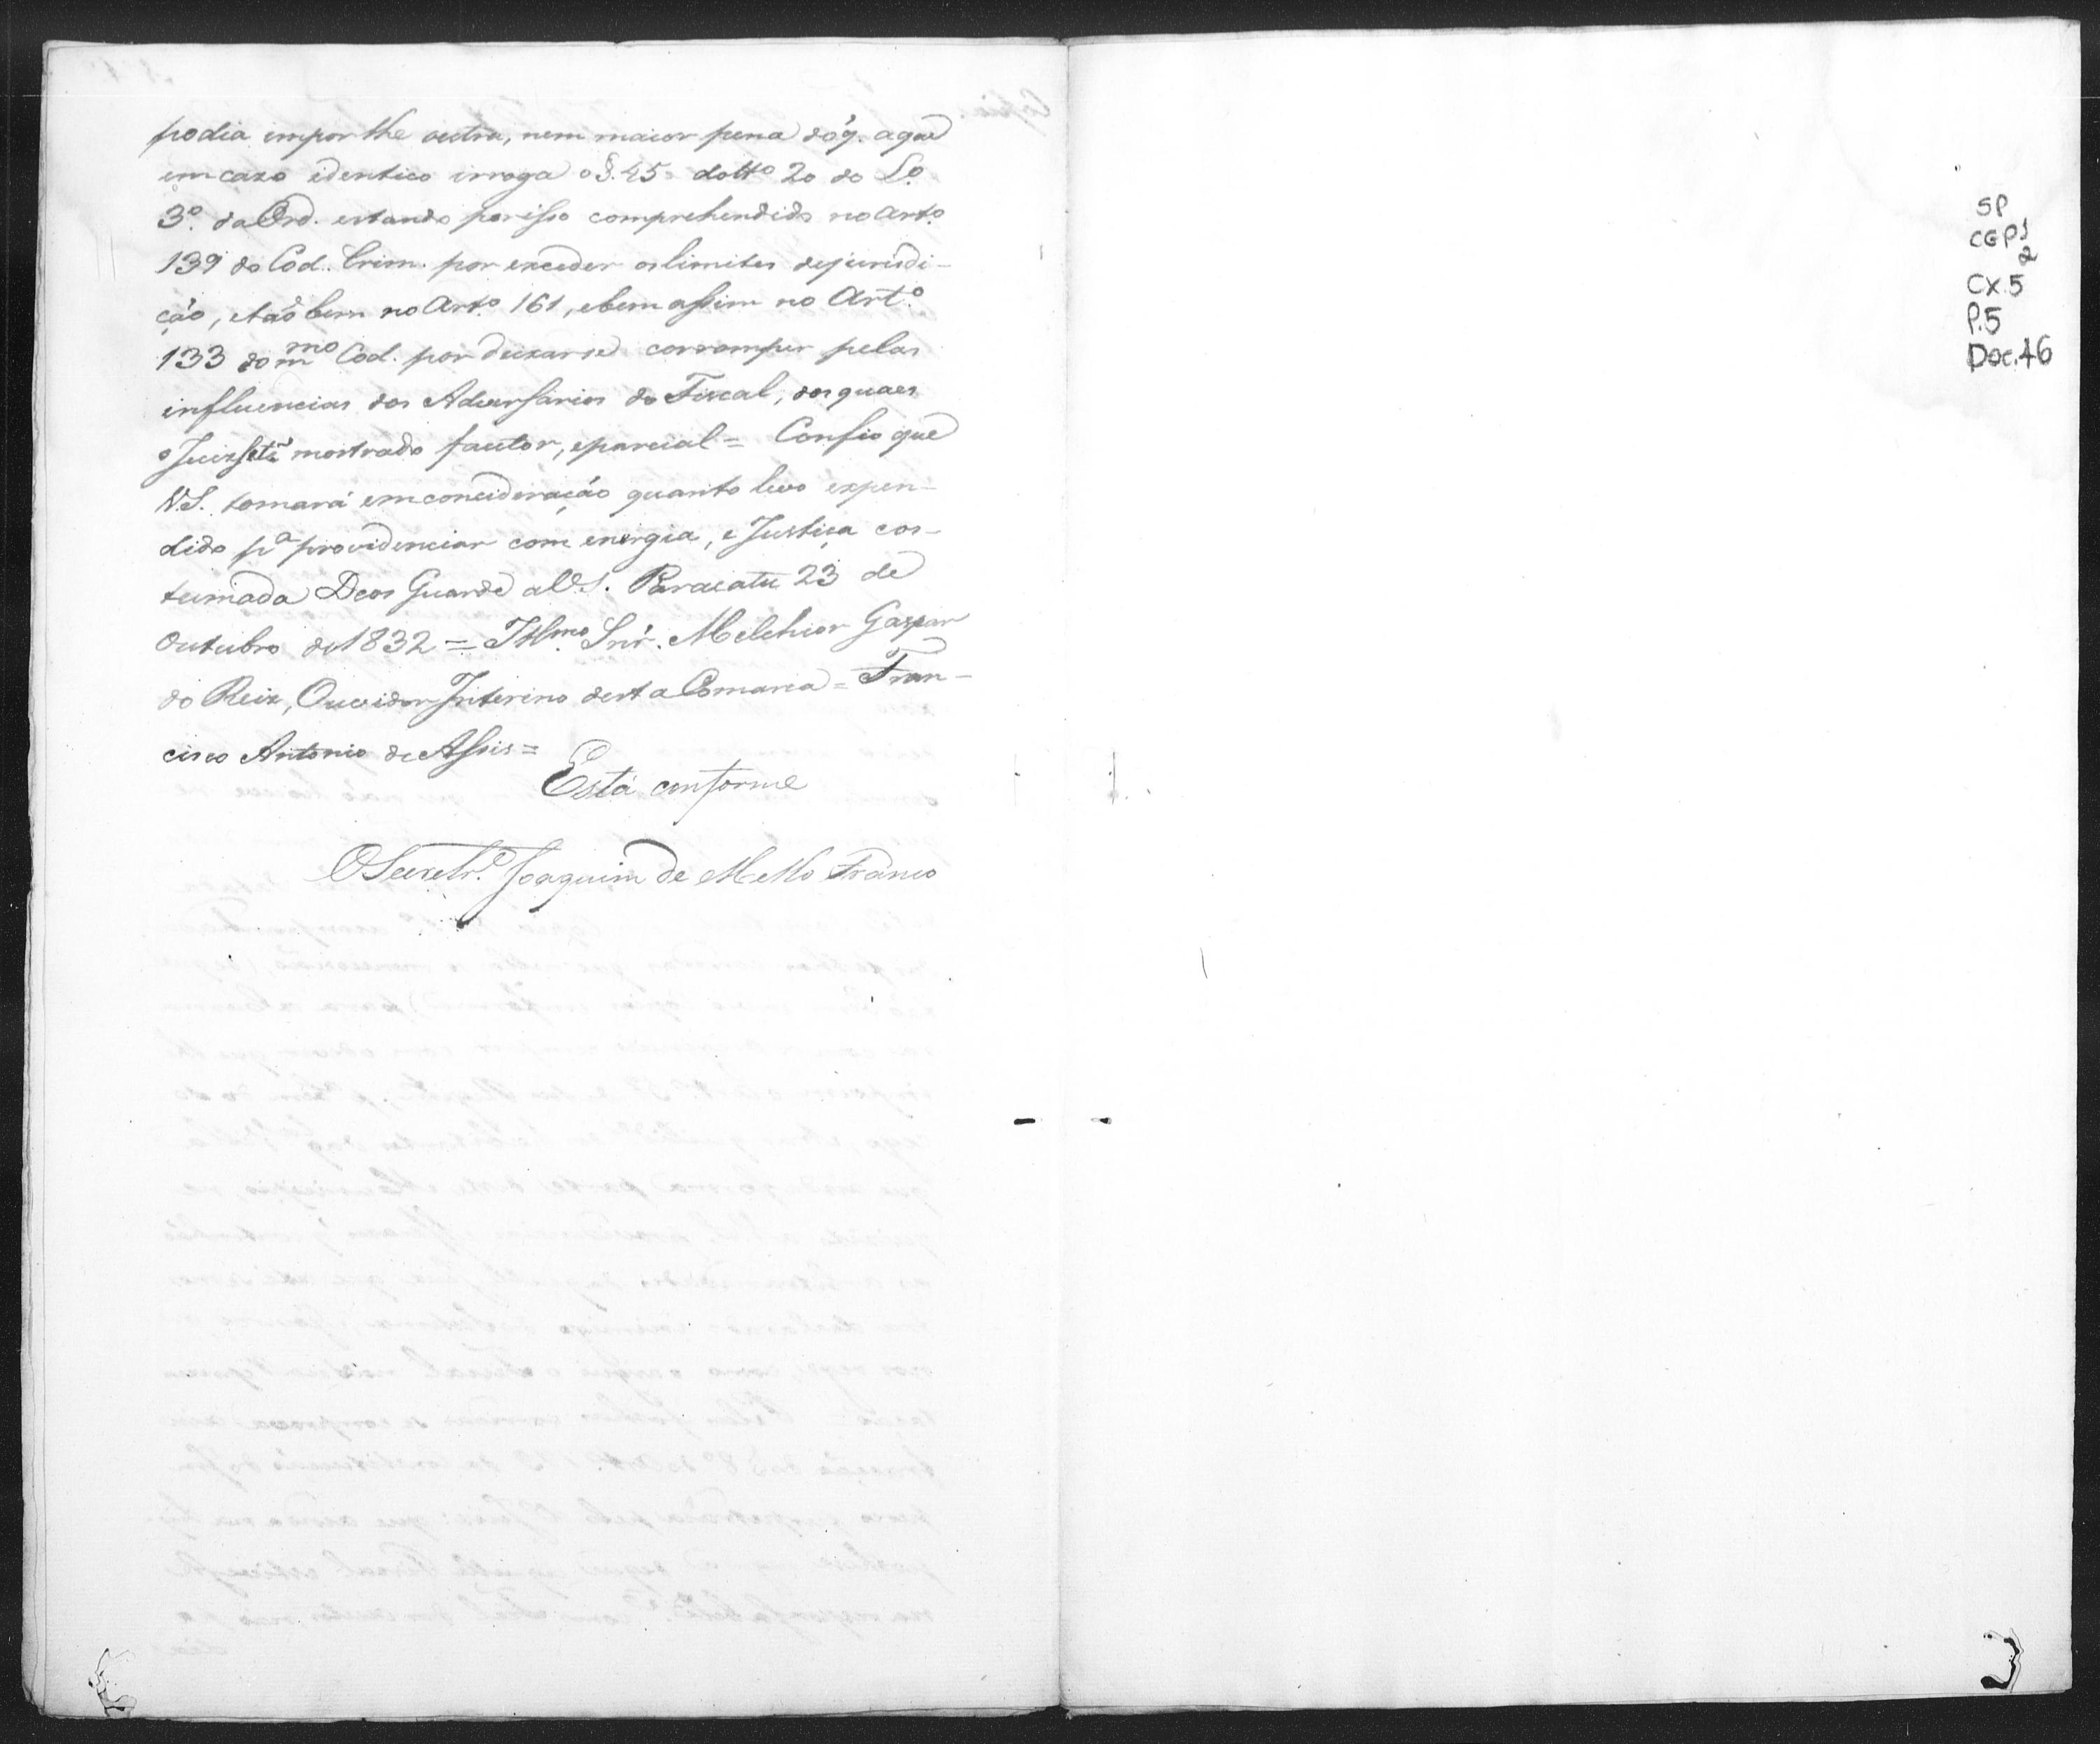 podia impor lhe outra, nem maior pena doq. a que
em cazo identico irroga o §. 45 do tto 20 do Lo.
3.º da Ord. estando por isso comprehendido no Arto.
139 do Cod. Crim. por exceder os limites de jurisdi-
ção, e tão bem no Arto. 161, e bem assim no Art.º
133 do mmo Cod. por deixar se corromper pelas
influencias dos Adversarios do Fiscal, dos quaes
o Juiz se tẽ mostrado fautor, e parcial = Confio que
V.S. tomará em concideração quanto levo expen-
dido pa providenciar com energia, e Justiça cos-
tumada Deos Guarde a V.S. Paracatu 23 de
Outubro de 1832 = Illmo. Snr. Melchior Gaspar
do Reiz, Ouvidor Interino desta Comarca = Fran-
cisco Antonio de Assis =
Está conforme
O Secretr.º Joaquim de Mello Franco
SP
CGP1
2
CX.5
P.5
Doc.46